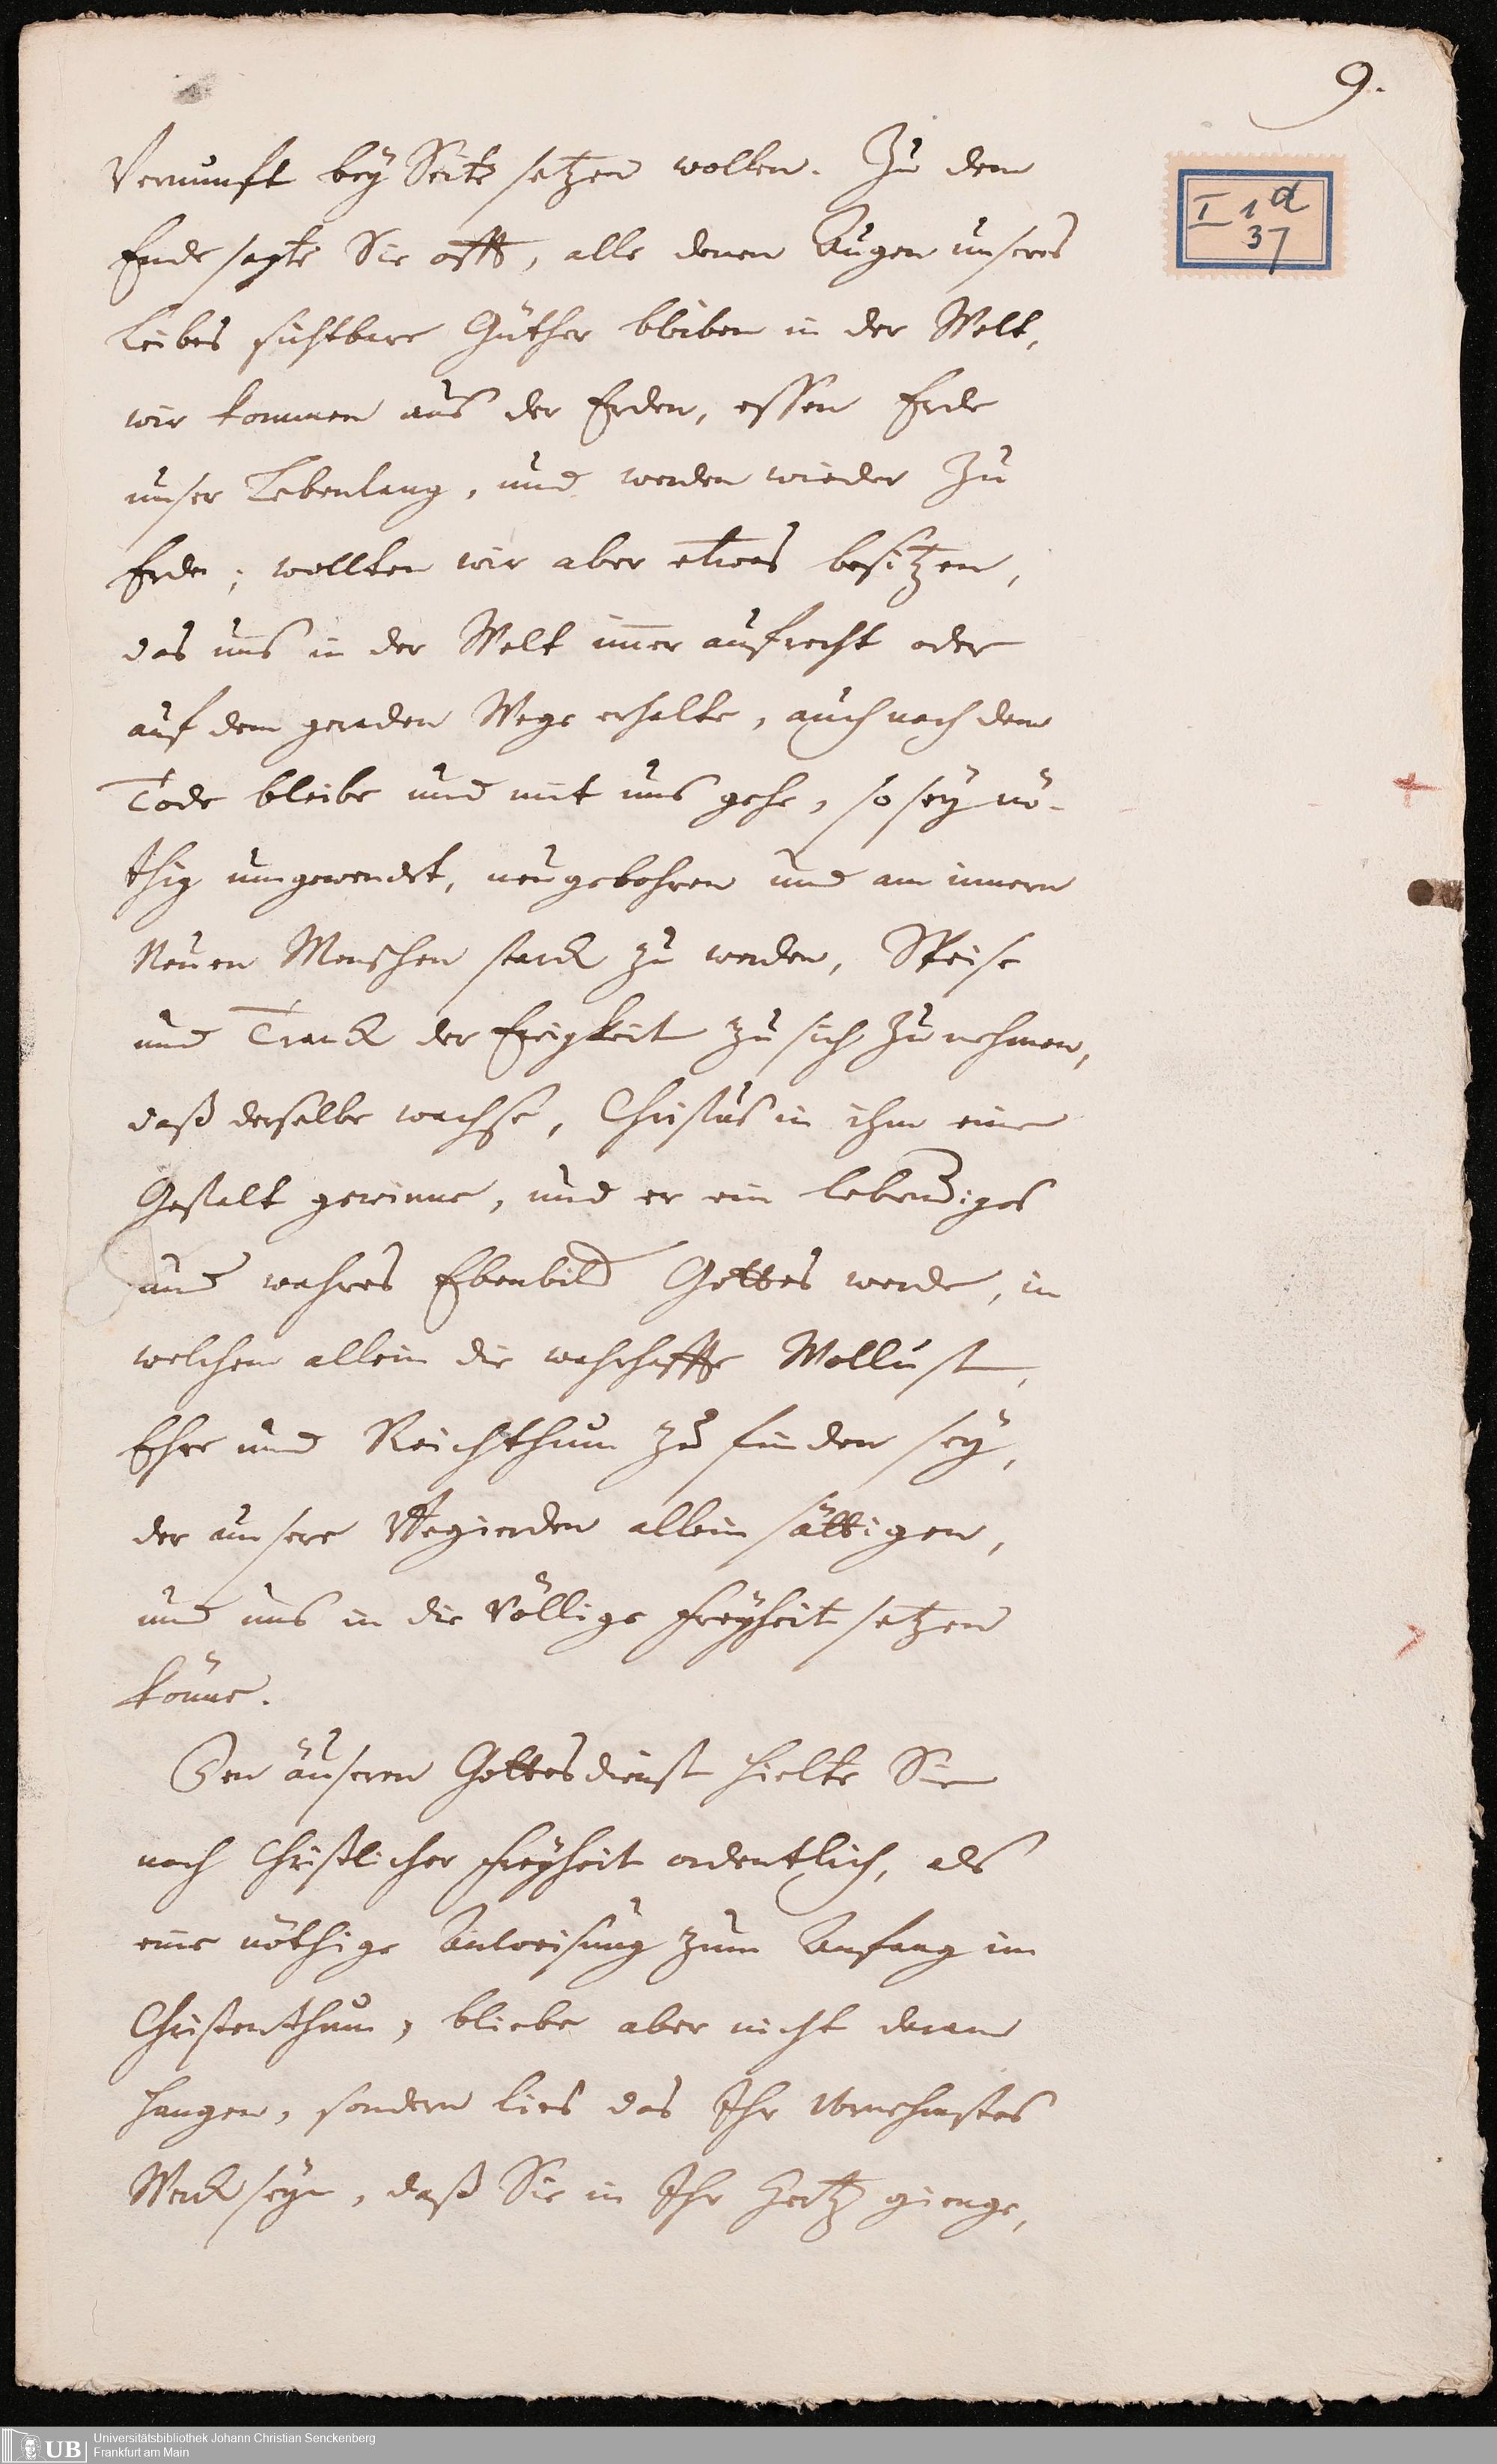 9.
I 1 d
37
Vernunft bey Seite setzen wollen. Zu dem
Ende sagte Sie offt, alle denen Augen unseres
Leibes sichtbare Güther bleiben in der Welt,
wir kommen aus der Erden, essen Erde
unser Lebenlang, und werden wieder zu
Erde; wollten wir aber etwas besitzen,
das uns in der Welt im̄er aufrecht oder
auf dem geraden Wege erhalte, auch nach dem
Tode bleibe und mit uns gehe, so sey nö-
thig umgewendet, neugebohren und am innern
Neuen Menschen starck zu werden, Speise
und Tranck der Ewigkeit zu sich zu nehmen,
daß derselbe wachse, Christus in ihm eine
Gestalt gewinne, und er ein lebendiges
und wahres Ebenbild Gottes werde, in
welchem allein die wahrhaffte Wollust,
Ehre und Reichthum zu finden sey,
der unsere Begierden allein sättigen,
und uns in die völlige Freyheit setzen
könne.
Den äuseren Gottesdienst hielte Sie
nach Christlicher Freyheit ordentlich, als
eine nöthige Anweisung zum Anfang im
Christenthum, bliebe aber nicht daran
hangen, sondern lies das Ihr vornehmstes
Werck seyn, daß Sie in Ihr Hertz gienge,
UB
Universitätsbibliothek Johann Christian Senckenberg
Frankfurt am Main